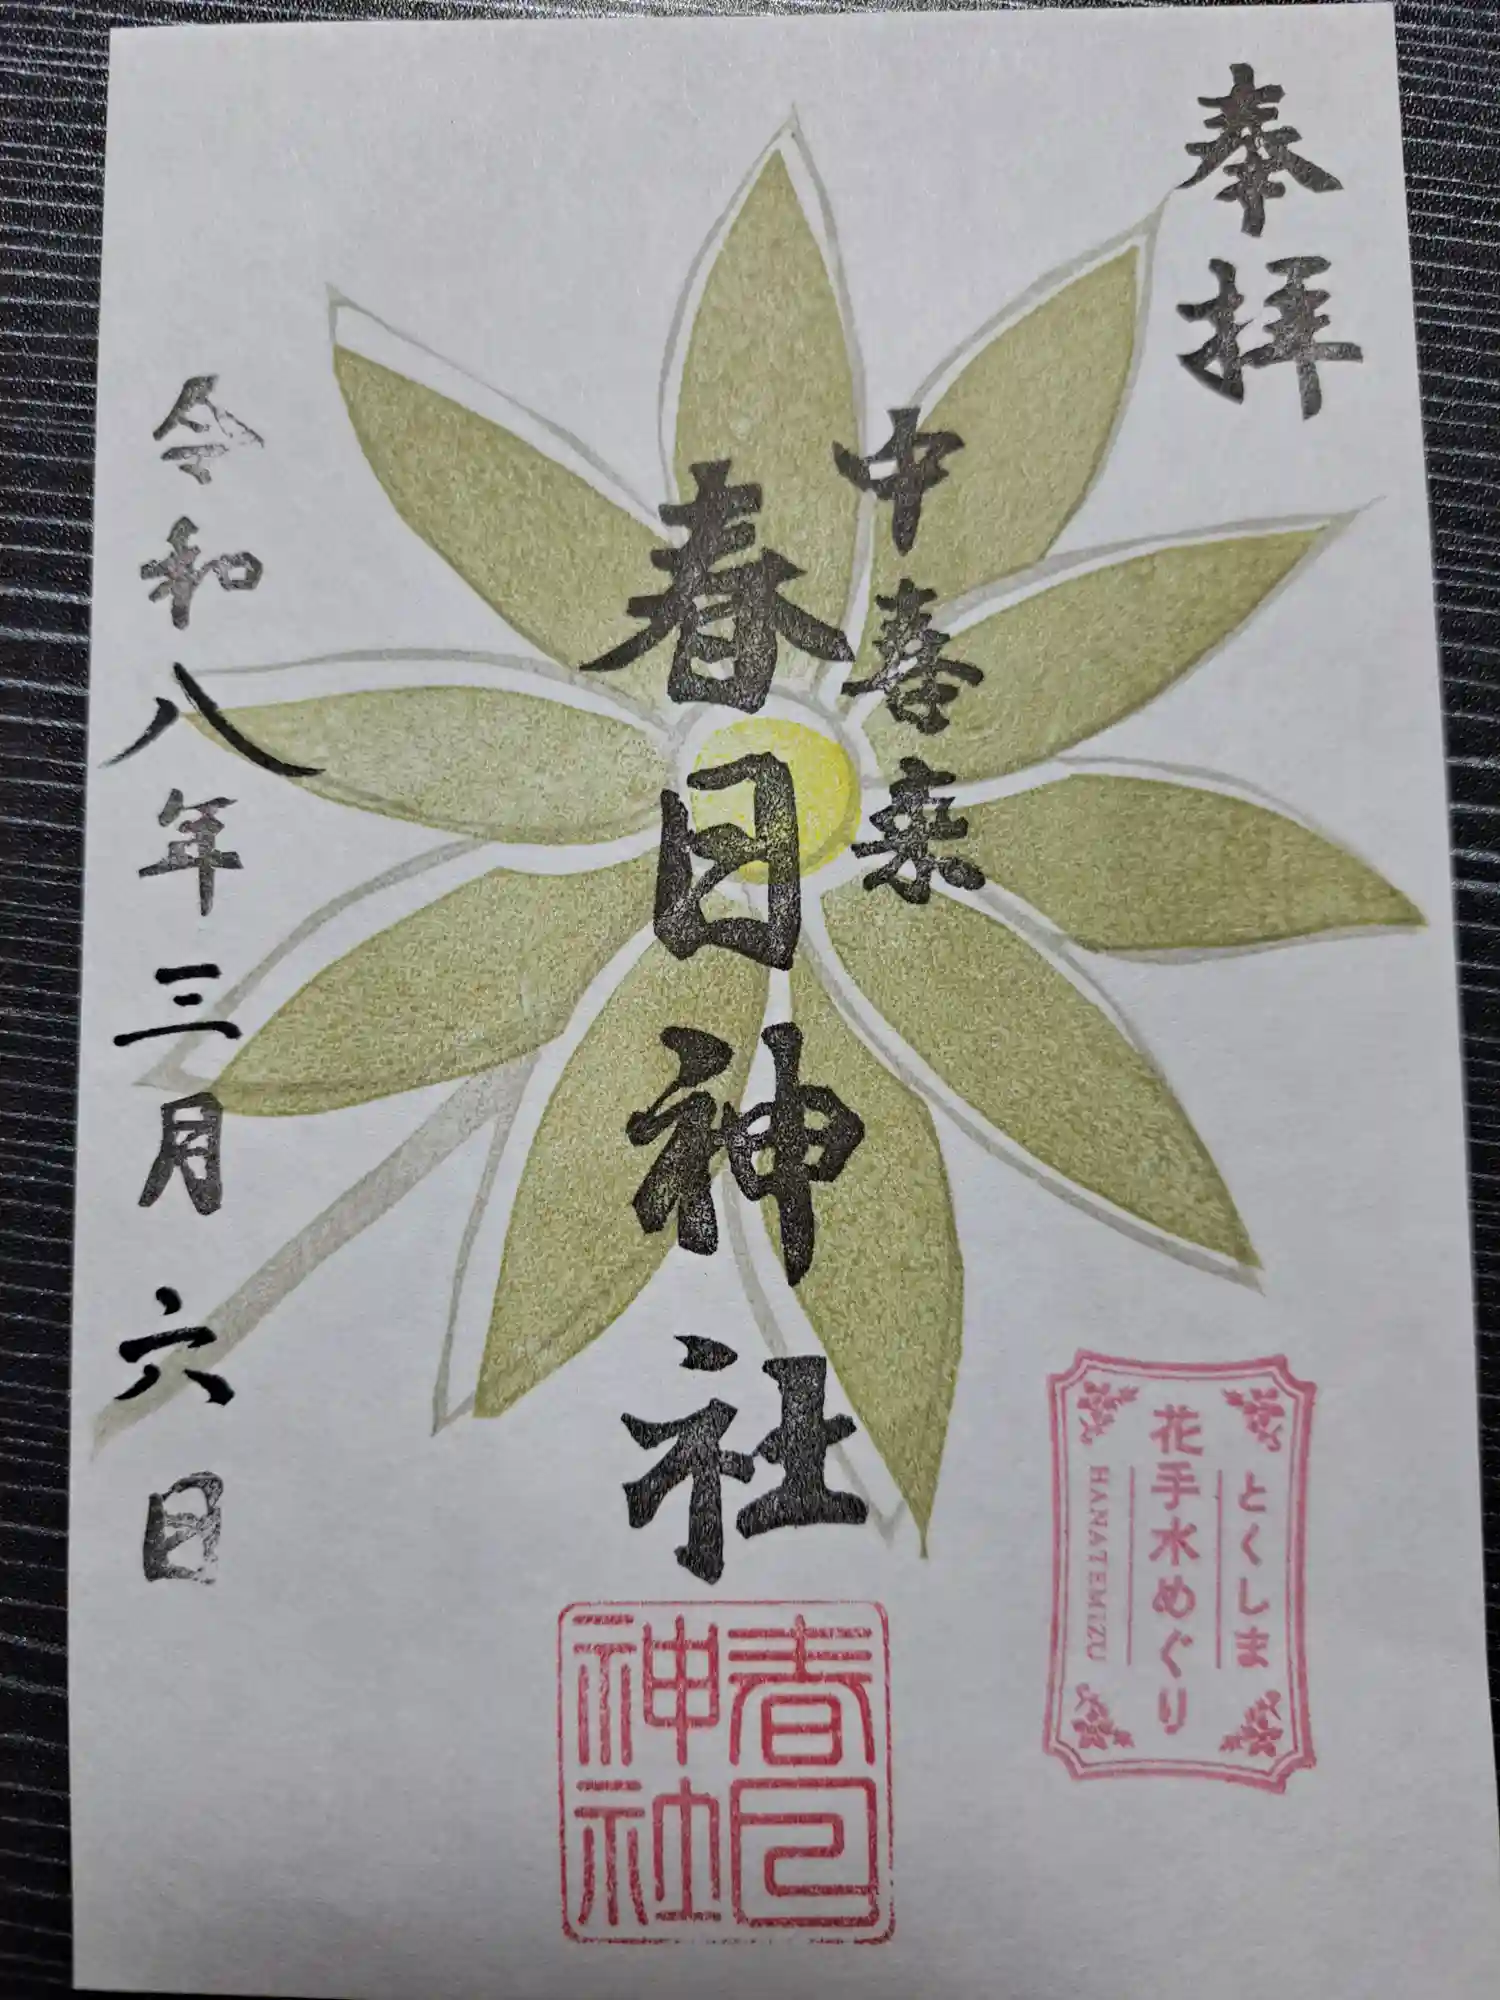 奉拝
中喜来
春日神社
令和八年三月六日
とくしま
花手水めぐり
HANATEMIZU
春日
神社